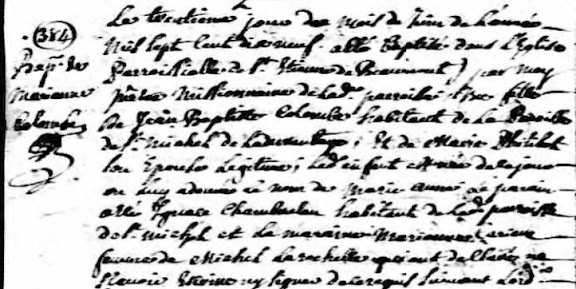 (384)
Bap. de
Marianne
Colombe
Le trentieme jour du mois de Juin de l'année
Mil sept cent dix neuf. a été Baptisée dans L'Eglise
Parroissialle de St. Etienne de Beaumont par moy
prêtre Missionnaire de lade. parroisse une fille
de Jean Baptiste Colombe habitant de La Paroisse
de St. Michel de Ladurantaye; et de Marie
son Epouse Legitime; lad. enfant née de ce jour
on luy a donné le nom de Marie anne Le parain
a été Ignace Chamberlan habitant de lade. parroisse
de St. Michel et La maraine Marianne
femme de Michel Larochelle qui ont declaré ne
sçavoir Ecrire ny signer de ce requis suivant Lord.